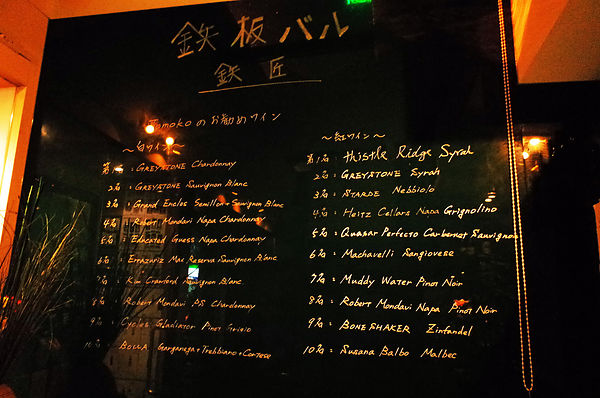 鉄板バル
鉄匠
Tomokoのお勧めワイン
〜白ワイン〜
第1位 : GREYSTONE Chardonnay
2位 : GREYSTONE Sauvignon Blanc
3位 : Grand Enclos Semillon Sauvignon Blanc
4位 : Robert Mondavi Napa Chardonnay
5位 : Educated Guess Napa Chardonnay
6位 : Errazuriz Max Reserva Sauvignon Blanc
7位 : Kim Crawford Sauvignon Blanc
8位 : Robert Mondavi PS Chardonnay
9位 : Cycles Gladiator Pinot Grigio
10位 : BOLLA Garganega+Trebbiano+Cortese
〜紅ワイン〜
第1位 : thistle Ridge Syrah
2位 : GREYSTONE Syrah
3位 : STARDE Nebbiolo
4位 : Heitz Cellars Napa Grignolino
5位 : Quasar Perfecto Carbernet Sauvignon
6位 : Machavelli Sangiovese
7位 : Muddy Water Pinot Noir
8位 : Robert Mondavi Napa Pinot Noir
9位 : BONESHAKER Zinfandel
10位 : Susana Balbo Malbec